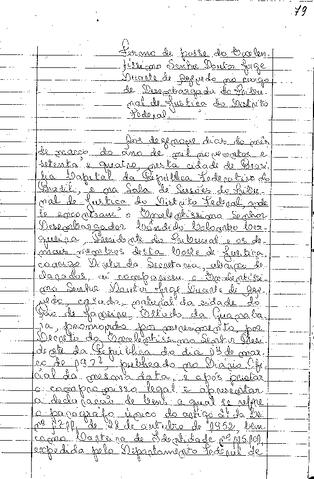 79
Termo de posse do Excelen-
tíssimo Senhor Doutor Jorge
Duarte de Azevedo no cargo
de Desembargador do Tribu-
nal de Justiça do Distrito
Federal.
Aos dezenove dias do mês
de março do ano de mil novecentos e
setenta e quatro, nesta cidade de Brasí-
lia Capital da República Federativa do
Brasil, e na Sala de Sessões do Tribu-
nal de Justiça do Distrito Federal, onde
se encontram o Excelentíssimo Senhor
Desembargador Cândido Colombo Cer-
queira, Presidente do Tribunal e os de-
mais membros desta Corte de Justiça,
comigo Diretor da Secretaria, abaixo de-
clarado, aí compareceu o Excelentíssi-
mo Senhor Doutor Jorge Duarte de Aze-
vedo, casado, natural da cidade do
Rio de Janeiro, Estado da Guanaba-
ra, promovido por merecimento, por
Decreto do Excelentíssimo Senhor Presi-
dente da República do dia de mar-
ço de 1974 publicado no Diário Ofi-
cial da mesma data, e após prestar
o compromisso legal e apresentar
a declaração de bens a qual se refere
o parágrafo único do artigo da Lei
nº de 28 de outubro de 1952, bem
como Carteira de Identidade nº
expedida pelo Departamento Federal de